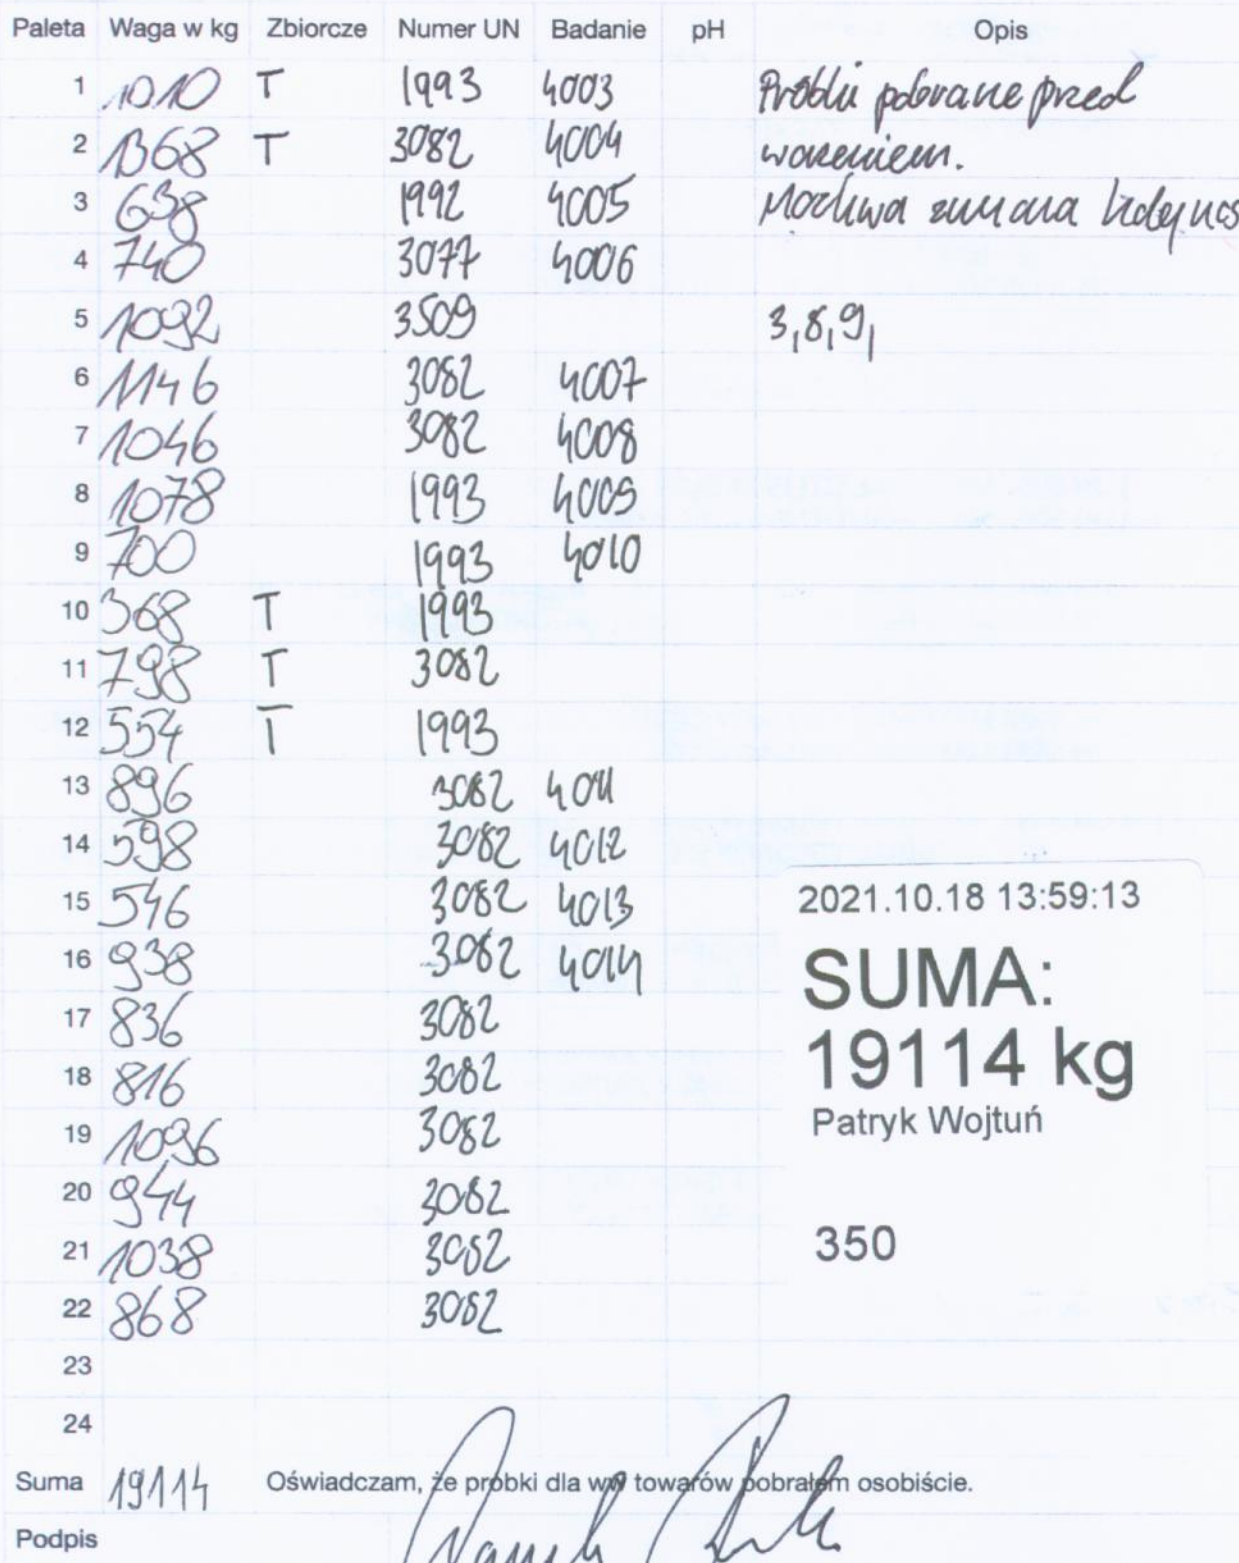 Paleta Waga w kg Zbiorcze Numer UN Badanie pH Opis
1 1010 T 1993 4003 Próbki pobrane przed
2 1368 T 3082 4004 ważeniem.
3 638 1992 4005 Możliwa zmiana
4 740 3077 4006
5 1092 3509 3,8,9,
6 1146 3082 4007
7 1046 3082 4008
8 1078 1993 4009
9 700 1993 4010
10 368 T 1993
11 798 T 3082
12 554 T 1993
13 896 3082 4011
14 598 3082 4012
15 546 3082 4013
16 938 3082 4014
17 836 3082
18 816 3082
19 1096 3082
20 944 3082
21 1038 3082
22 868 3082
23
24
2021.10.18 13:59:13
SUMA:
19114 kg
Patryk Wojtuń
350
Suma 19114 Oświadczam, że próbki dla ww towarów pobrałem osobiście.
Podpis